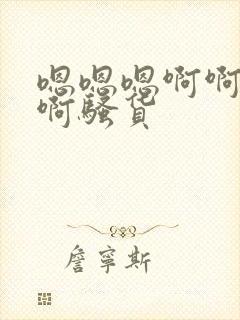 嗯嗯嗯啊啊
啊骚货
詹寧斯